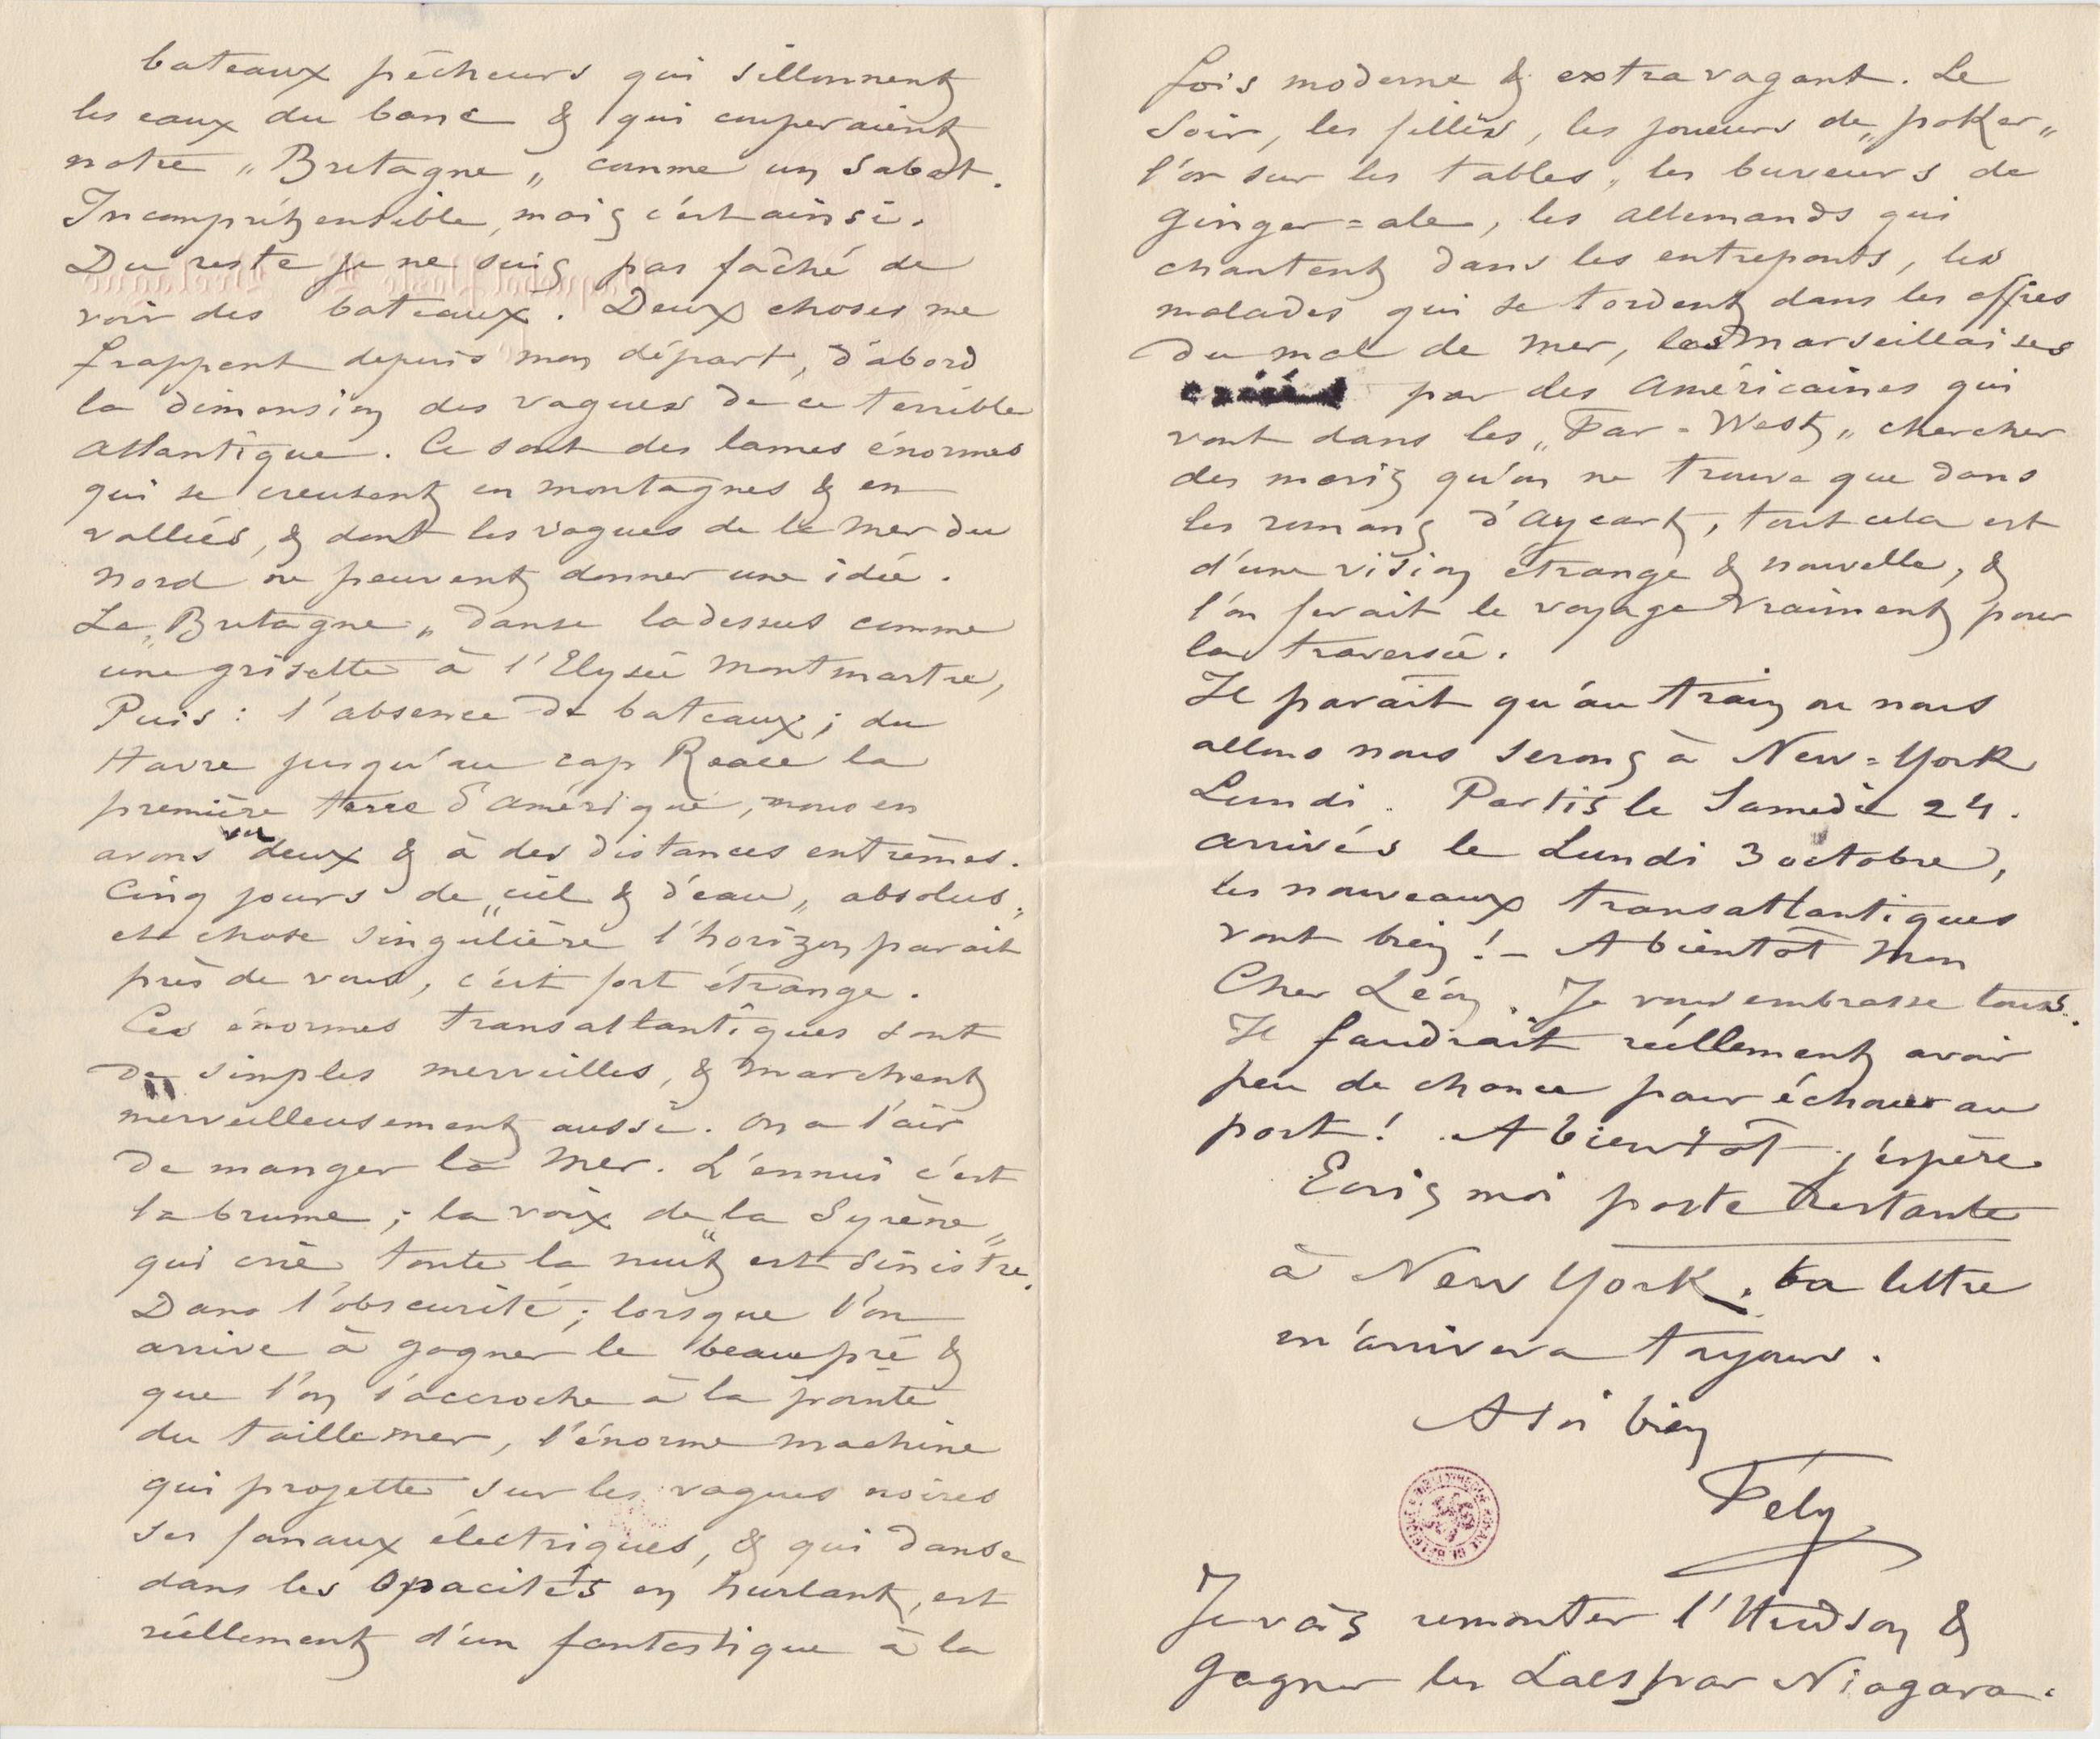 bateaux pêcheurs qui sillonnent
les eaux du banc & qui couperaient
notre „Bretagne„ comme un sabot.
Incompréhensible, mais c'est ainsi.
Du reste je ne suis pas fâché de
voir des bateaux. Deux choses me
frappent depuis mon départ, d'abord
la dimension des vagues de ce terrible
Atlantique. Ce sont des lames énormes
qui se creusent en montagnes & en
vallées, & dont les vagues de la Mer du
Nord ne peuvent donner une idée.
La „Bretagne„ danse ladessus comme
une grisette à l'Elysée Montmartre,
Puis : l'absence de bateaux ; du
Havre jusqu'au cap Reace la
première terre d'Amérique, nous en
avons vu deux & à des distances extrêmes.
Cinq jours de „ciel & d'eau„ absolus,
et chose singulière l'horizon parait
près de vous, c'est fort étrange.
Ces énormes transatlantiques sont
de simples merveilles, & marchent
merveilleusement aussi. On a l'air
de manger la Mer. L'ennui c'est
la brume ; la voix de „la Syrène„
qui crie toute la nuit est sinistre.
Dans l'obscurité ; lorsque l'on
arrive à gagner le beaupré &
que l'on s'accroche à la pointe
du taillemer, l'énorme machine
qui projette sur les vagues noires
ses fanaux électriques, & qui danse
dans les opacités en hurlant, est
réellement d'un fantastique à la
fois moderne & extravagant. Le
Soir, les filles, les joueurs de „poker„
l'or sur les tables, les buveurs de
ginger=ale, les allemands qui
chantent dans les entreponts, les
malades qui se tordent dans les affres
du mal de mer, les Marseillaises
par des Américaines qui
vont dans les „Far-West„ chercher
des maris qu'on ne trouve que dans
les romans d'Aycart, tout cela est
d'une vision étrange & nouvelle, &
l'on ferait le voyage vraiment pour
la traversée.
Il parait qu'au train ou nous
allons nous serons à New=York
Lundi. Partis le Samedi 24.
arrivés le Lundi 3 octobre,
les nouveaux transatlantiques
vont bien ! – A bientôt Mon
Cher Léon. Je vous embrasse tous.
Il faudrait réellement avoir
peu de chance pour échouer au
port ! A bientôt j'espère
Ecris moi poste restante
à New York. ta lettre
m'arrivera toujours.
A toi bien
Fély
Je vais remonter l'Hudson &
gagner les Lacs par Niagara.